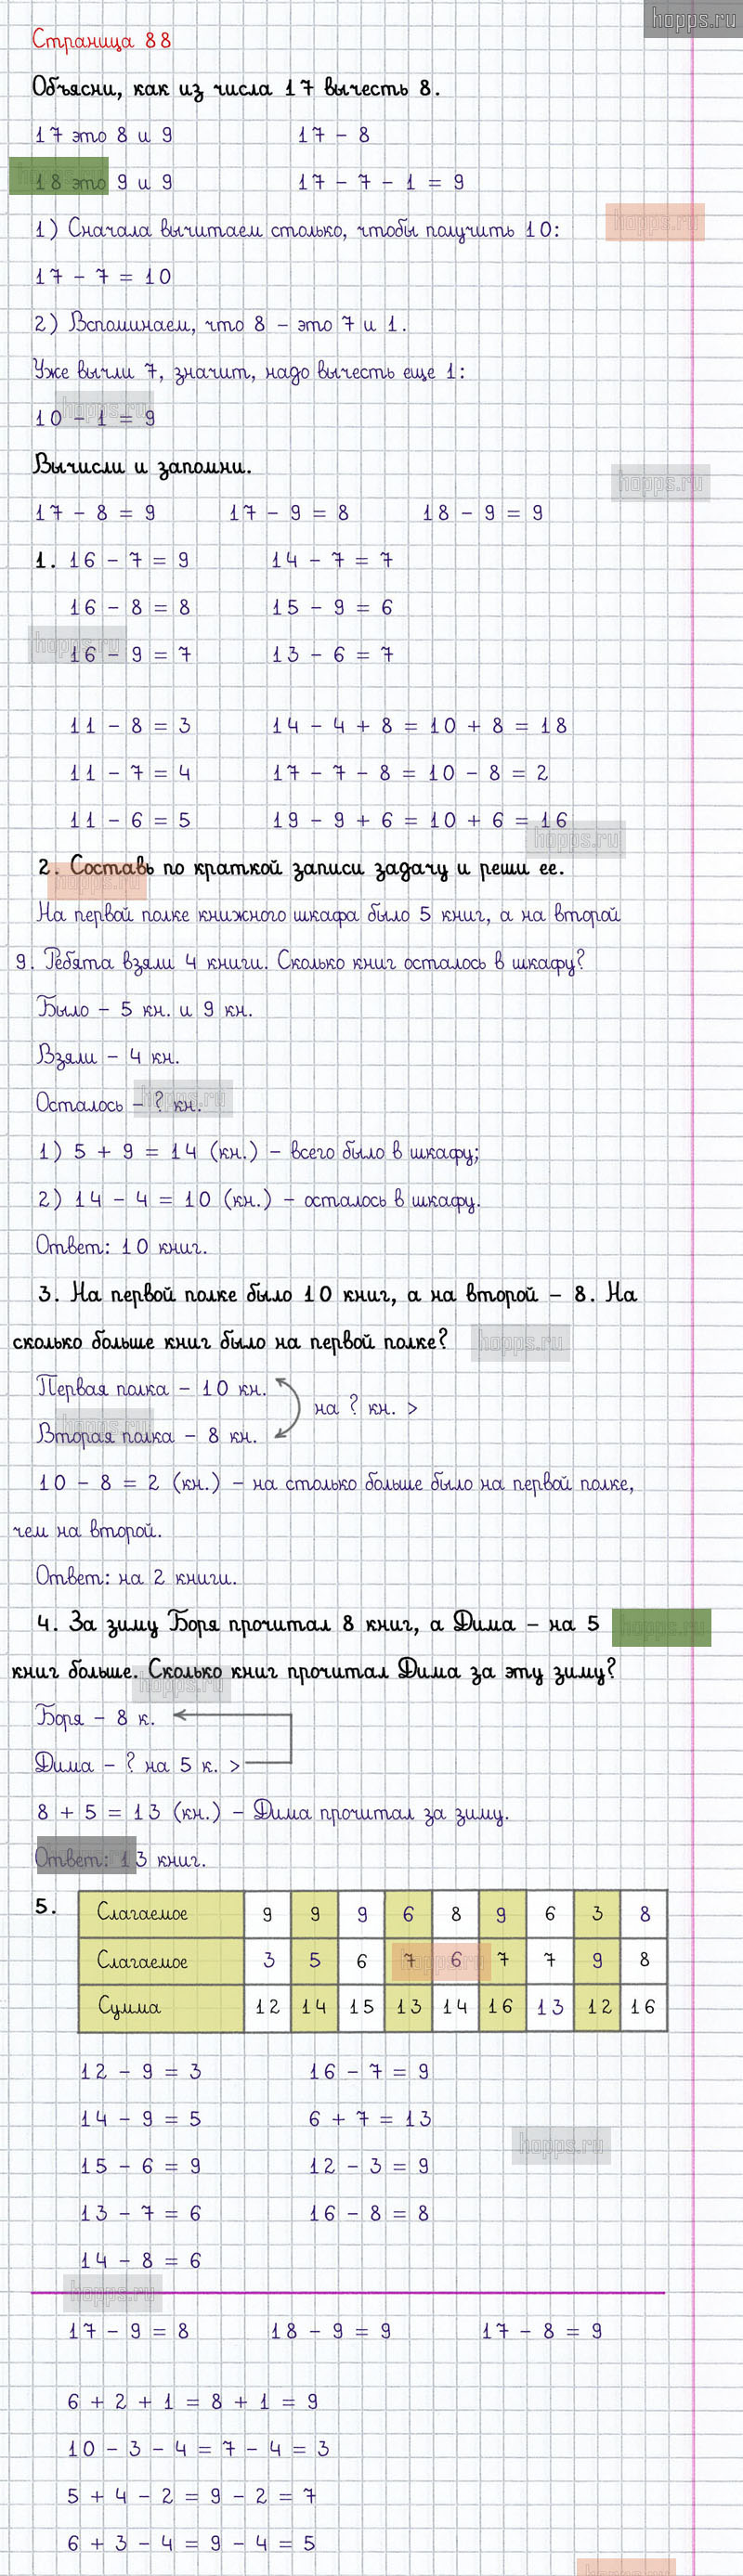 hopps.ru
Страница 88
Объясни, как из числа 17 вычесть 8.
17 это 8 и 9 17 - 8
18 это 9 и 9 17 - 7 - 1 = 9
1) Сначала вычитаем столько, чтобы получить 10:
hopps.ru
17 - 7 = 10
2) Вспоминаем, что 8 - это 7 и 1.
Уже вычли 7, значит, надо вычесть еще 1:
hopps.ru
10 - 1 = 9
Вычисли и запомни.
hopps.ru
17 - 8 = 9 17 - 9 = 8 18 - 9 = 9
1. 16 - 7 = 9 14 - 7 = 7
16 - 8 = 8 15 - 9 = 6
hopps.ru
16 - 9 = 7 13 - 6 = 7
11 - 8 = 3 14 - 4 + 8 = 10 + 8 = 18
11 - 7 = 4 17 - 7 - 8 = 10 - 8 = 2
11 - 6 = 5 19 - 9 + 6 = 10 + 6 = 16
hopps.ru
2. Составь по краткой записи задачу и реши ее.
hopps.ru
На первой полке книжного шкафа было 5 книг, а на второй
9. Ребята взяли 4 книги. Сколько книг осталось в шкафу?
Было - 5 кн. и 9 кн.
Взяли - 4 кн.
Осталось - ? кн.
hopps.ru
1) 5 + 9 = 14 (кн.) - всего было в шкафу;
2) 14 - 4 = 10 (кн.) - осталось в шкафу.
Ответ: 10 книг.
3. На первой полке было 10 книг, а на второй - 8. На
сколько больше книг было на первой полке?
hopps.ru
Первая полка - 10 кн.
на ? кн. >
hopps.ru
Вторая полка - 8 кн.
10 - 8 = 2 (кн.) - на столько больше было на первой полке,
чем на второй.
Ответ: на 2 книги.
4. За зиму Боря прочитал 8 книг, а Дима - на 5
hopps.ru
книг больше. Сколько книг прочитал Дима за эту зиму?
hopps.ru
Боря - 8 к.
Дима - ? на 5 к. >
8 + 5 = 13 (кн.) - Дима прочитал за зиму.
Ответ: 13 книг.
5. Слагаемое 9 9 9 6 8 9 6 3 8
Слагаемое 3 5 6 7 6 7 7 9 8
hopps.ru
Сумма 12 14 15 13 14 16 13 12 16
12 - 9 = 3 16 - 7 = 9
14 - 9 = 5 6 + 7 = 13
hopps.ru
15 - 6 = 9 12 - 3 = 9
13 - 7 = 6 16 - 8 = 8
14 - 8 = 6
hopps.ru
17 - 9 = 8 18 - 9 = 9 17 - 8 = 9
6 + 2 + 1 = 8 + 1 = 9
10 - 3 - 4 = 7 - 4 = 3
5 + 4 - 2 = 9 - 2 = 7
6 + 3 - 4 = 9 - 4 = 5